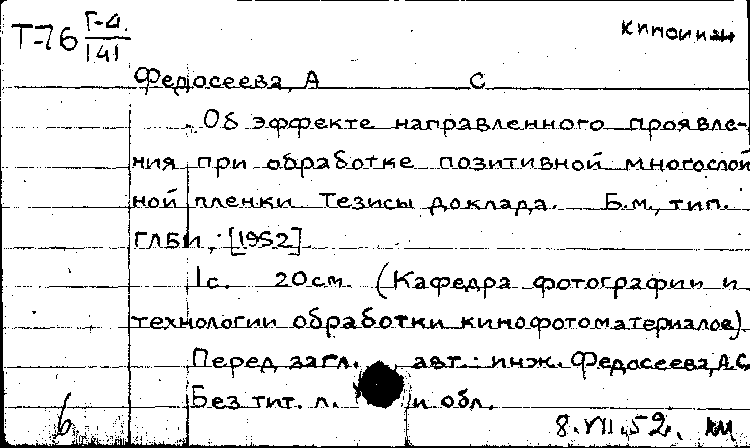 Т-76 Г-4. Киноинж
141
Федосеева, А С
Об эффекте направленного проявле-
ния при обработке позитивной многослой
ной пленки Тезисы доклада. Б.м., тип.
ГЛБИ, [1952]
1с. 20см. (Кафедра фотографии и
технологии обработки кинофотоматериалов)
Перед загл. авт.: инж. Федосеева, А.С.
Без тит. л. и обл.
6 8.VII.52.